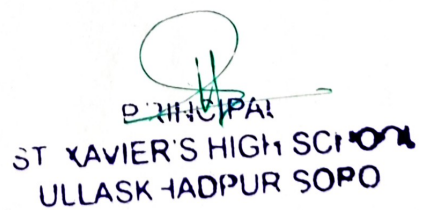 PRINCIPAL
ST XAVIER'S HIGH SCHOOL
ULLASKHADPUR SOPO